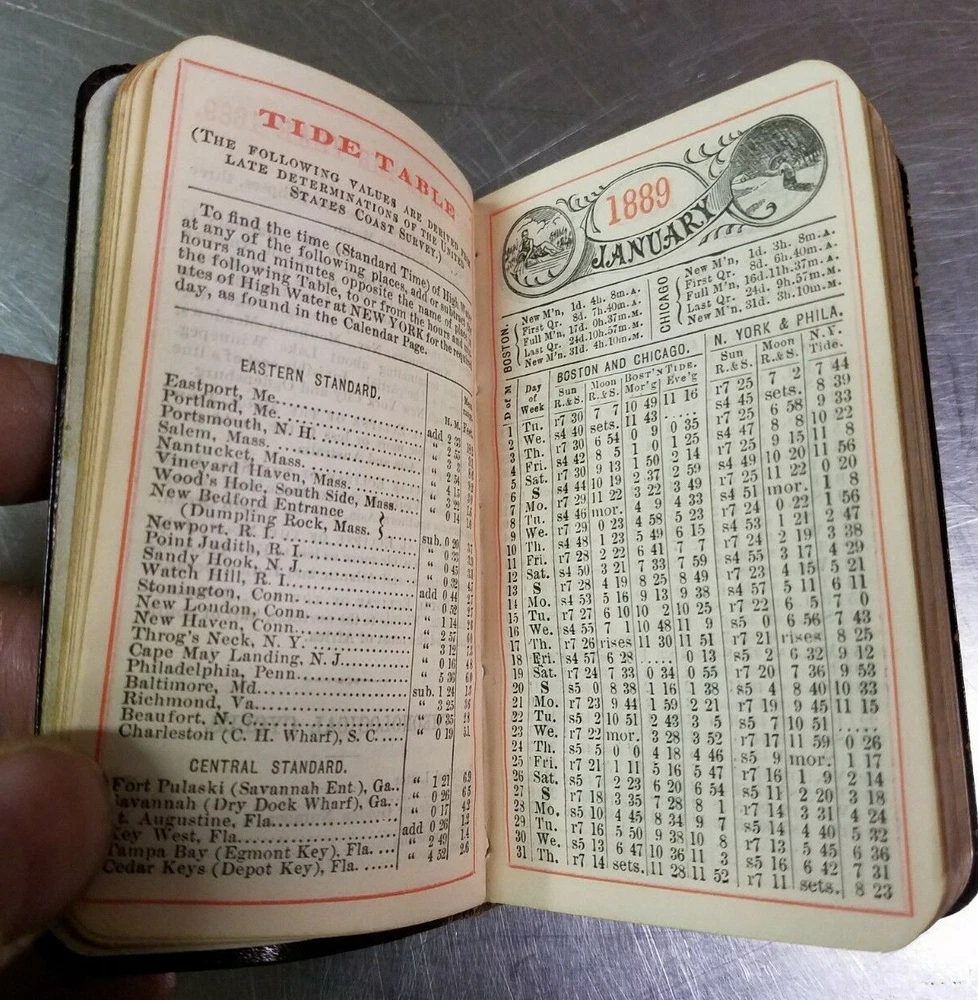 TIDE TABLE
(THE FOLLOWING VALUES ARE DERIVED FROM
LATE DETERMINATIONS OF THE UNITED
STATES COAST SURVEY.)
To find the time (Standard Time) of High
at any of the following places, add or subtract
hours and minutes opposite the name of place, in
the following Table, to or from the hours and min-
utes of High Water at NEW YORK for the required
day, as found in the Calendar Page.
EASTERN STANDARD.
H. M. Feet.
Eastport, Me. add 2 33
Portland, Me. "
Portsmouth, N. H. "
Salem, Mass. " 2 54
Nantucket, Mass. " 4 15
Vineyard Haven, Mass. " 3 22
Wood's Hole, South Side, Mass. " 0 14
New Bedford Entrance
(Dumpling Rock, Mass. sub. 0 20
Newport, R. I. " 0 33
Point Judith, R. I. " 0 45
Sandy Hook, N. J. " 0 32
Watch Hill, R. I. add 0 44
Stonington, Conn. " 0 52
New London, Conn. " 1 14
New Haven, Conn. "
Throg's Neck, N. Y. " 3 12
Cape May Landing, N. J. " 0 16 4.8
Philadelphia, Penn. " 5 36 6.0
Baltimore, Md. sub. 1 24 1.3
Richmond, Va. " 3 25
Beaufort, N. C. " 0 35 2.8
Charleston (C. H. Wharf), S. C. " 0 19 5.1
CENTRAL STANDARD.
Fort Pulaski (Savannah Ent.), Ga. " 1 27 6.9
Savannah (Dry Dock Wharf), Ga. " 0 26 6.5
t. Augustine, Fla. " 0 17 4.2
Key West, Fla. add 0 26 1.2
Tampa Bay (Egmont Key), Fla. " 2 49 1.4
Cedar Keys (Depot Key), Fla. " 4 52 2.6
1889
JANUARY
BOSTON.
New M'n, 1d. 4h. 8m. A.
First Qr. 8d. 7h. 40m. A.
Full M'n, 17d. 0h. 37m. M.
Last Qr. 24d. 10h. 57m. M.
New M'n. 31d. 4h. 10m. M.
CHICAGO
New M'n, 1d. 3h. 8m. A.
First Qr. 8d. 6h. 40m. A.
Full M'n, 16d. 11h. 37m. A.
Last Qr. 24d. 9h. 57m. M.
New M'n, 31d. 3h. 10m. M.
D of M Day of Week BOSTON AND CHICAGO. N. YORK & PHILA.
Sun R.&S. Moon R.&S. BOST'N TIDE. Mor'g Eve'g Sun R.&S. Moon R.&S. N.Y. Tide.
1 Tu. r7 30 7 7 10 49 11 16 r7 25 7 2 7 44
2 We. s4 40 sets. 11 43 ..... s4 45 sets. 8 39
3 Th. r7 30 6 54 0 9 0 35 r7 25 6 58 9 33
4 Fri. s4 42 8 5 1 0 1 25 s4 47 8 8 10 22
5 Sat. r7 30 9 13 1 50 2 14 r7 25 9 15 11 8
6 S s4 44 10 19 2 37 2 59 s4 49 10 20 11 56
7 Mo. r7 29 11 22 3 22 3 49 r7 25 11 22 0 20
8 Tu. s4 46 mor. 4 9 4 33 s4 51 mor. 1 8
9 We. r7 29 0 23 4 58 5 23 r7 24 0 22 1 56
10 Th. s4 48 1 23 5 49 6 15 s4 53 1 21 2 47
11 Fri. r7 28 2 22 6 41 7 7 r7 24 2 19 3 38
12 Sat. s4 50 3 21 7 33 7 59 s4 55 3 17 4 29
13 S r7 28 4 19 8 25 8 49 r7 23 4 15 5 21
14 Mo. s4 53 5 16 9 13 9 38 s4 57 5 11 6 11
15 Tu. r7 27 6 10 10 2 10 25 r7 22 6 5 7 0
16 We. s4 55 7 1 10 48 11 9 s5 0 6 56 7 43
17 Th. r7 26 rises 11 30 11 51 r7 21 rises 8 25
18 Fri. s4 57 6 28 ..... 0 13 s5 2 6 32 9 12
19 Sat. r7 24 7 33 0 34 0 55 r7 20 7 36 9 53
20 S s5 0 8 38 1 16 1 38 s5 4 8 40 10 33
21 Mo. r7 23 9 44 1 59 2 21 r7 19 9 45 11 15
22 Tu. s5 2 10 51 2 43 3 5 s5 7 10 51 .....
23 We. r7 22 mor. 3 28 3 52 r7 17 11 59 0 26
24 Th. s5 5 0 0 4 18 4 46 s5 9 mor. 1 17
25 Fri. r7 21 1 11 5 16 5 47 r7 16 1 9 2 14
26 Sat. s5 7 2 23 6 20 6 54 s5 11 2 20 3 18
27 S r7 18 3 35 7 28 8 1 r7 14 3 31 4 24
28 Mo. s5 10 4 45 8 34 9 7 s5 14 4 40 5 32
29 Tu. r7 16 5 50 9 38 10 8 r7 13 5 45 6 36
30 We. s5 13 6 47 10 36 11 3 s5 16 6 42 7 31
31 Th. r7 14 sets. 11 28 11 52 r7 11 sets. 8 23